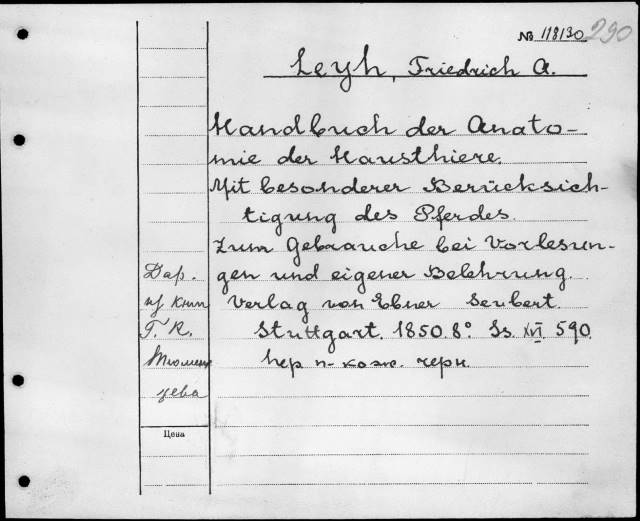 № 118130 290
Leyh, Friedrich A.
Handbuch der Anato-
mie der Hausthiere.
Mit besonderer Berücksich-
tigung des Pferdes.
Zum Gebrauche bei Vorlesun-
gen und eigener Belehrung.
Verlag von Ebner Seubert.
Stuttgart. 1850. 8° Ss. XVI. 590.
пер п-кож. черн.
Дар.
из книг
Г. К.
Тюмен
цева
Цена